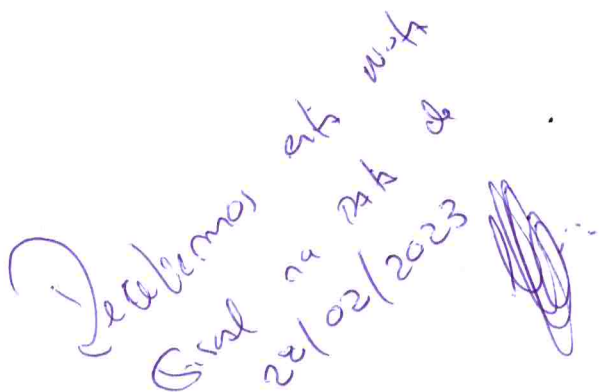 Recebemos esta nota
fiscal na data de
28/02/2023